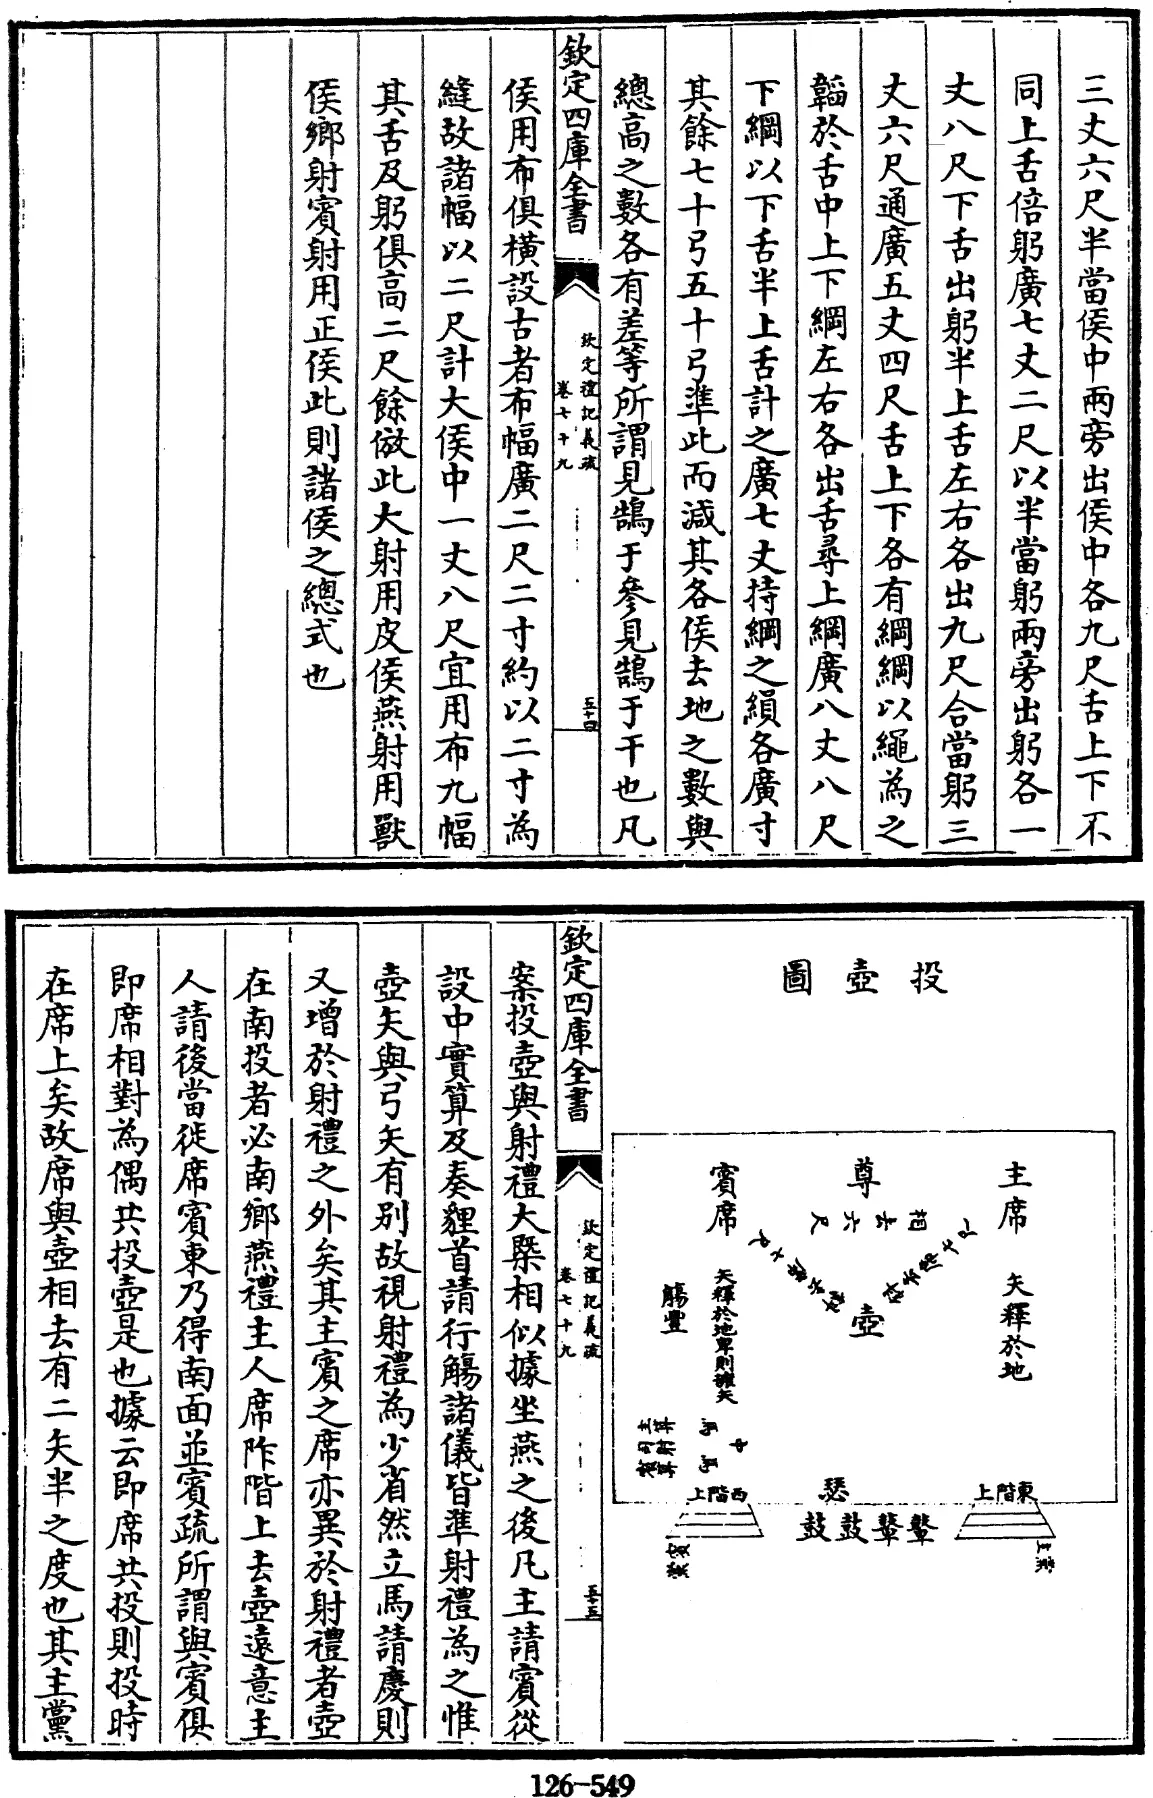 三丈六尺半當侯中兩旁出侯中各九尺舌上下不
同上舌倍躬廣七丈二尺以半當躬兩旁出躬各一
丈八尺下舌出躬半上舌左右各出九尺合當躬三
丈六尺通廣五丈四尺舌上下各有綱綱以繩為之
韜於舌中上下綱左右各出舌尋上綱廣八丈八尺
下綱以下舌半上舌計之廣七丈持綱之縜各廣寸
其餘七十弓五十弓準此而減其各侯去地之數與
總高之數各有差等所謂見鵠于參見鵠于干也凡
欽定四庫全書
欽定禮記義疏
卷七十九
五十四
侯用布俱橫設古者布幅廣二尺二寸約以二寸為
縫故諸幅以二尺計大侯中一丈八尺宜用布九幅
其舌及躬俱高二尺餘倣此大射用皮侯燕射用獸
侯鄉射賓射用正侯此則諸侯之總式也
投壺圖
主席
矢釋於地
尊
相去六尺
壺
賓席
矢釋於地卑則擁矢
觴豐
馬
馬
中
東階上
西階上
瑟
鼙鼙鼓鼓
主黨
賓黨
欽定四庫全書
欽定禮記義疏
卷七十九
五十五
案投壺與射禮大槩相似據坐燕之後凡主請賓從
設中實算及奏貍首請行觴諸儀皆準射禮為之惟
壺矢與弓矢有別故視射禮為少省然立馬請慶則
又增於射禮之外矣其主賓之席亦異於射禮者壺
在南投者必南鄉燕禮主人席阼階上去壺遠意主
人請後當徙席賓東乃得南面並賓疏所謂與賓俱
即席相對為偶共投壺是也據云即席共投則投時
在席上矣故席與壺相去有二矢半之度也其主黨
126-549